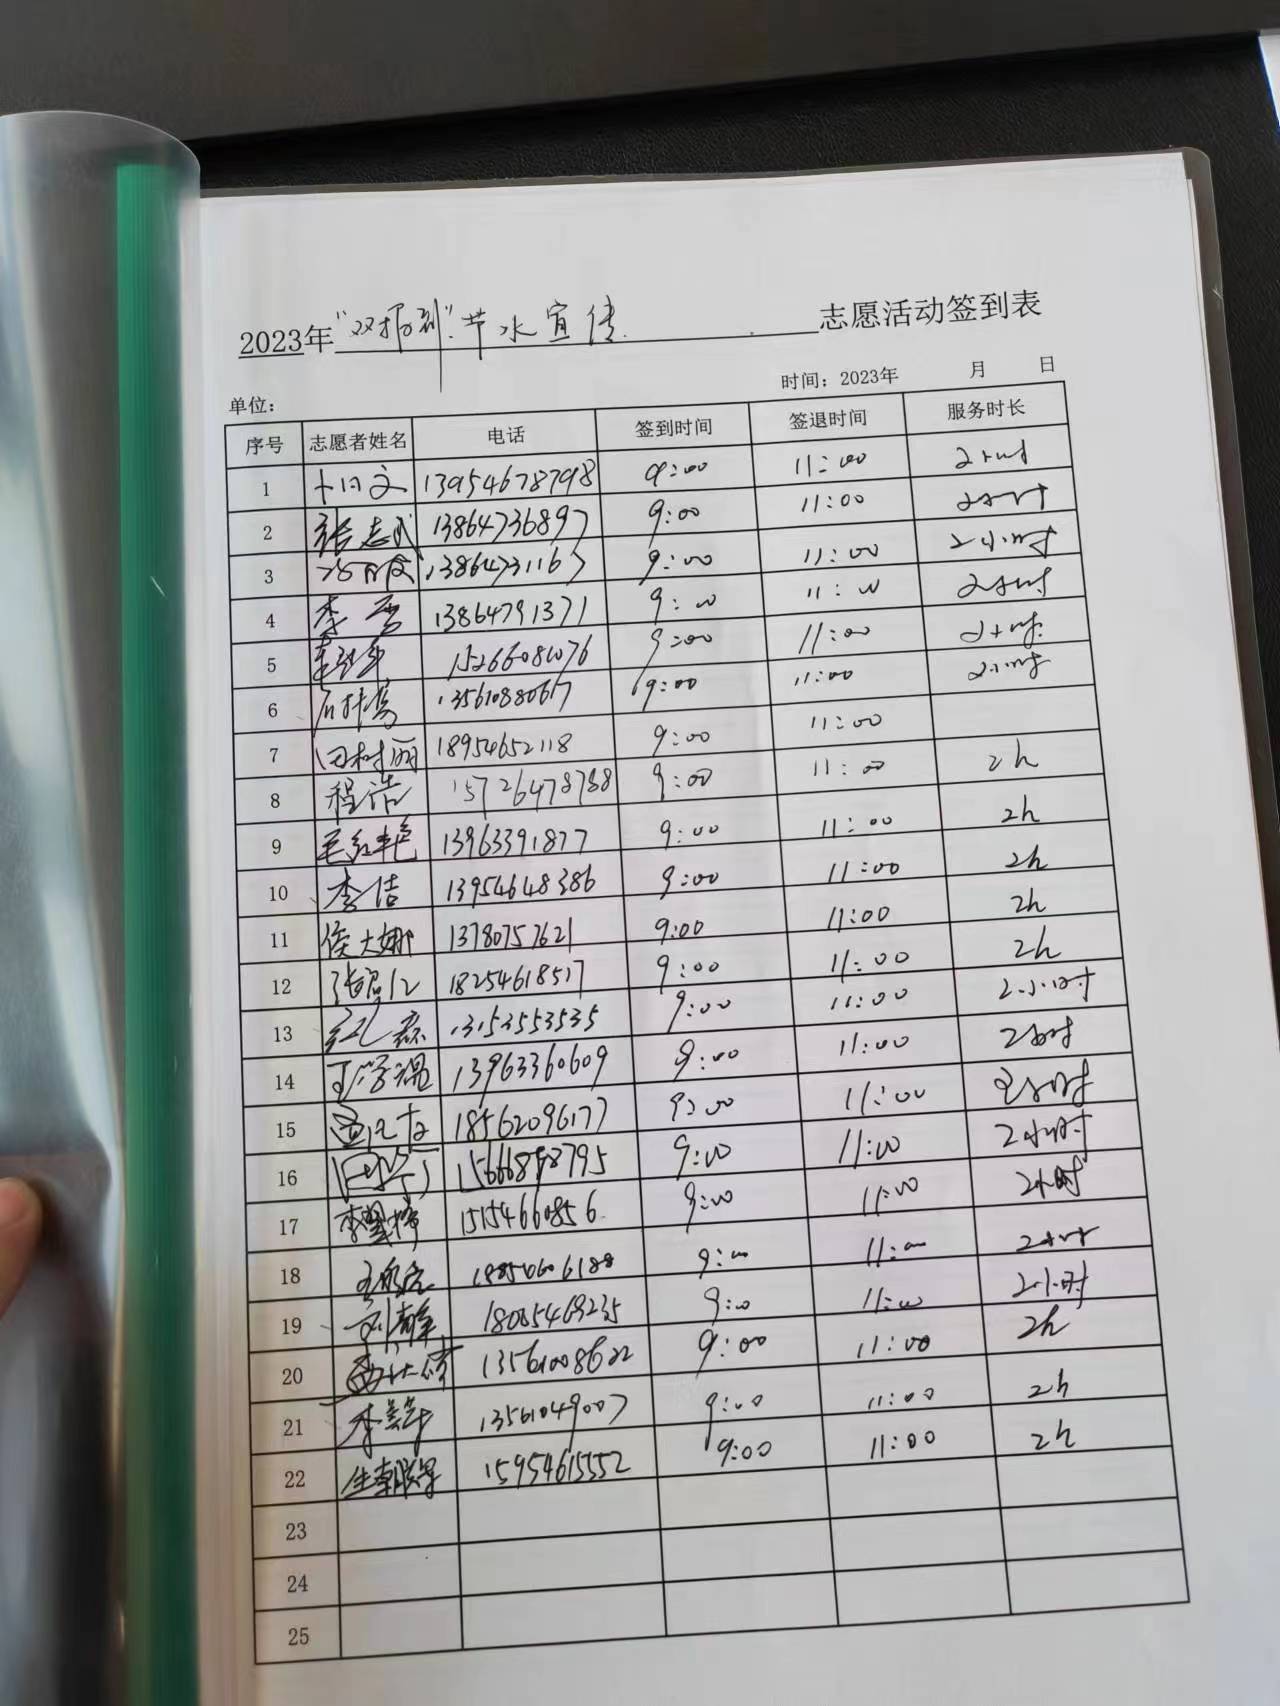 2023年"双报到"节水宣传 志愿活动签到表
单位: 时间: 2023年 月 日
序号 志愿者姓名 电话 签到时间 签退时间 服务时长
1 13954678798 9:00 11:00 2小时
2 张志武 13864736897 9:00 11:00 2小时
3 13864731167 9:00 11:00 2小时
4 李 13864791371 9:00 11:00 2小时
5 9:00 11:00 2小时
6 13561088067 9:00 11:00 2小时
7 田树丽 18954652118 9:00 11:00
8 程浩 15726478788 9:00 11:00 2h
9 毛红艳 13963391877 9:00 11:00 2h
10 李洁 13954648386 9:00 11:00 2h
11 侯大娜 13780757621 9:00 11:00 2h
12 18254618517 9:00 11:00 2h
13 13153553535 9:00 11:00 2小时
14 13963360609 9:00 11:00 2小时
15 18562096177 9:00 11:00 2小时
16 9:00 11:00 2小时
17 李翠婷 15154660856 9:00 11:00 2小时
18 9:00 11:00 2小时
19 9:00 11:00 2小时
20 13561008622 9:00 11:00 2h
21 李美华 13561049007 9:00 11:00 2h
22 15954615552 9:00 11:00 2h
23
24
25